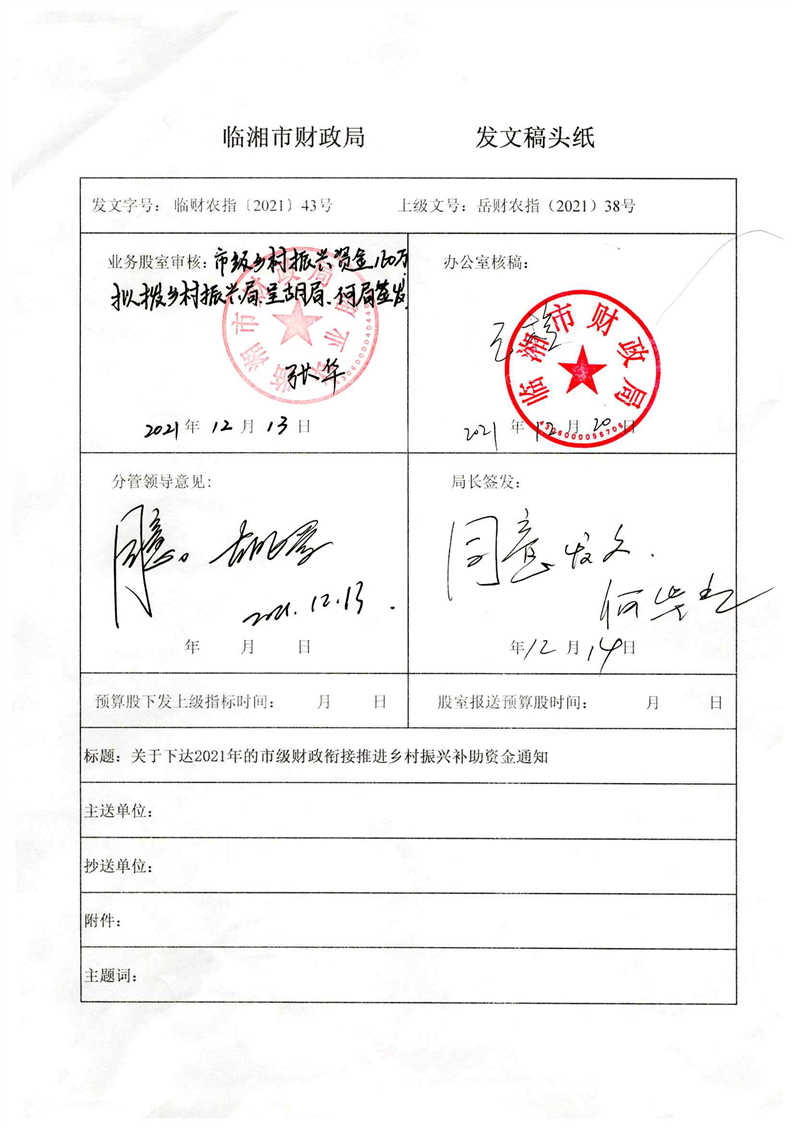 临湘市财政局 发文稿头纸
发文字号：临财农指〔2021〕43号 上级文号：岳财农指（2021）38号
业务股室审核：市级乡村振兴资金160万
拟拨乡村振兴局，呈胡局、何局签发
临湘市财政局
张华
2021年12月13日
办公室核稿：
临湘市财政局
2021年12月20日
分管领导意见：
同意。
2021.12.13.
年 月 日
局长签发：
同意发文.
年12月14日
预算股下发上级指标时间： 月 日 股室报送预算股时间： 月 日
标题：关于下达2021年的市级财政衔接推进乡村振兴补助资金通知
主送单位：
抄送单位：
附件：
主题词：